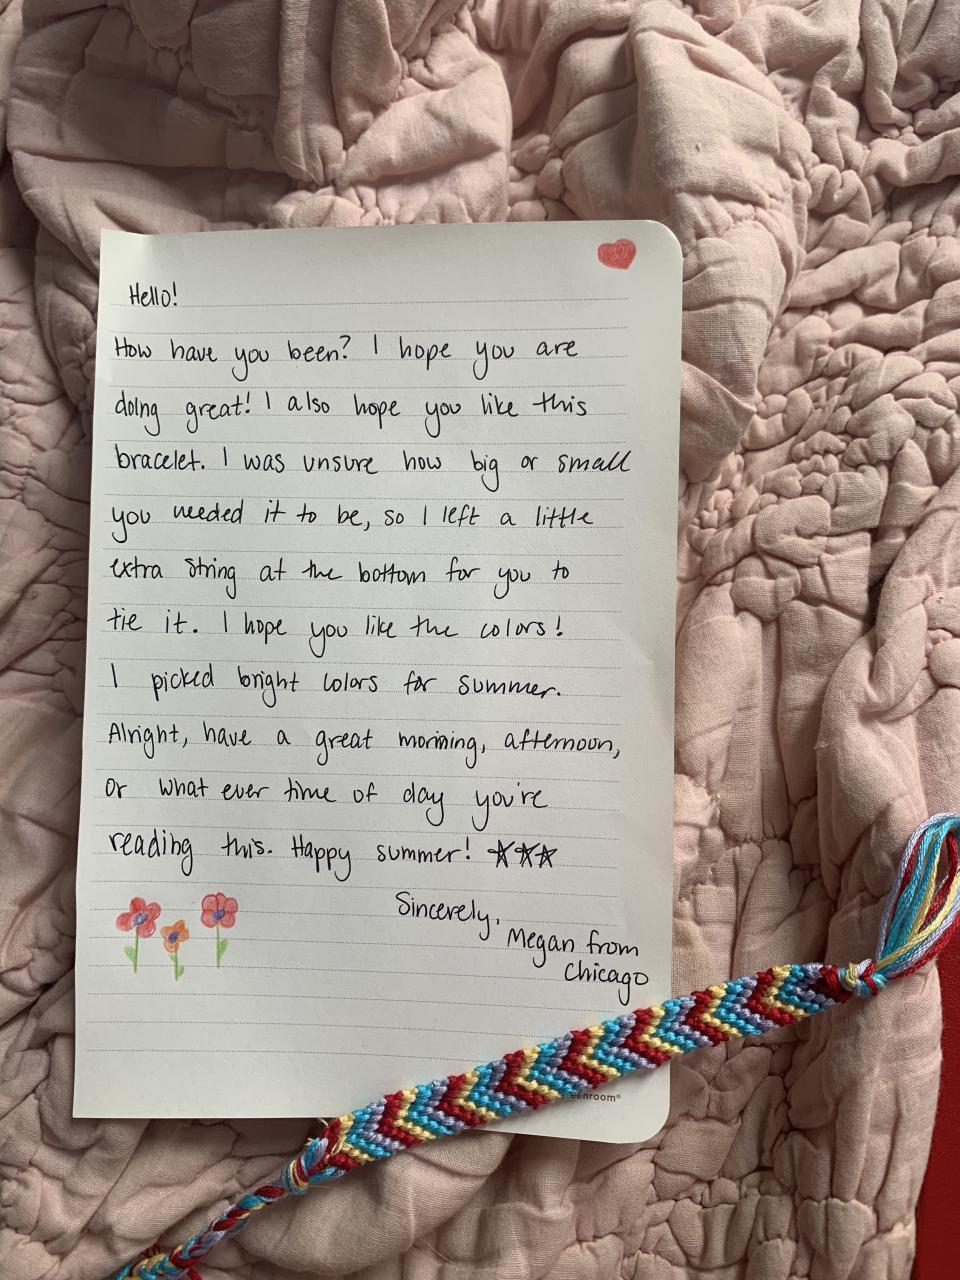 Hello!
How have you been? I hope you are
doing great! I also hope you like this
bracelet. I was unsure how big or small
you needed it to be, so I left a little
extra string at the bottom for you to
tie it. I hope you like the colors!
I picked bright colors for summer.
Alright, have a great morning, afternoon,
or what ever time of day you're
reading this. Happy summer! ☆☆☆
Sincerely,
Megan from
Chicago
enroom®